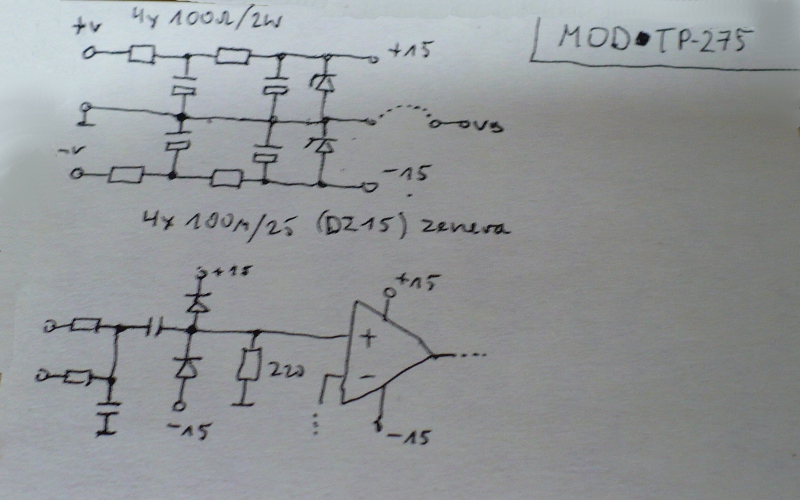 4x 100Ω/2W
MOD•TP-275
+V
+15
OVS
-V
-15
4x 100m/25 (DZ15) zenera
+15
+15
+
220
-
-15
-15